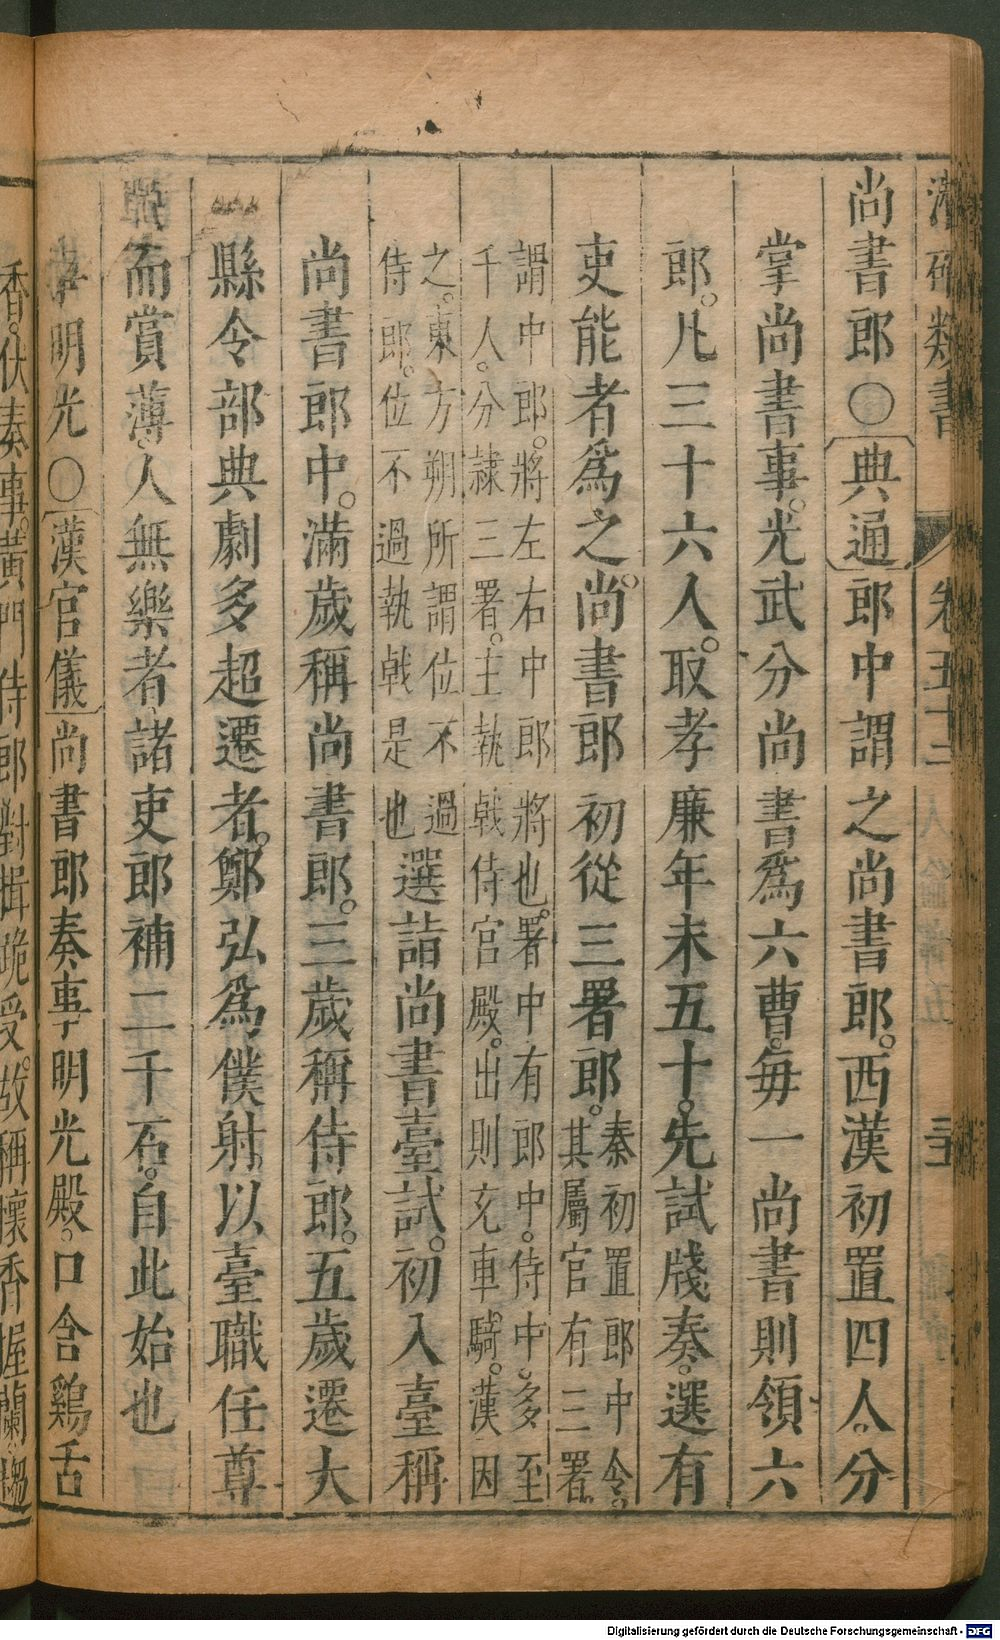 類書 卷五十二
尚書郎〇典通郎中謂之尚書郎。西漢初置四人。分
掌尚書事。光武分尚書爲六曹。每一尚書則領六
郎。凡三十六人。取孝廉年未五十。先試牋奏。選有
吏能者爲之。尚書郎初從三署郎。秦初置郎中令。其屬官有三署。
謂中郎。將左右中郎將也。署中有郎中。侍中。多至
千人。分隸三署。主執戟侍宮殿。出則充車騎。漢因
之。東方朔所謂位不過侍郎。位不過執戟是也選詣尚書臺試。初入臺稱
尚書郎中。滿歲稱尚書郎。三歲稱侍郎。五歲遷大
縣令部典劇多超遷者。鄭弘爲僕射以臺職任尊
而賞薄。人無樂者。諸吏郎補二千石。自此始也
事明光〇漢官儀尚書郎奏事明光殿。口含鷄舌
香。伏奏事。黃門侍郎對揖跪受。故稱懷香握蘭。趨
Digitalisierung gefördert durch die Deutsche Forschungsgemeinschaft - DFG